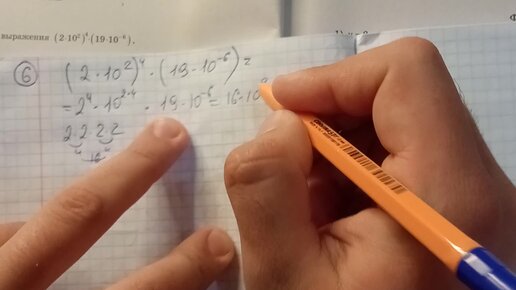 выражения (2·10²)⁴(19·10⁻⁶).
6 (2·10²)⁴·(19·10⁻⁶)=
=2⁴·10²·⁴·19·10⁻⁶=16·10
2·2·2·2
4 4
16